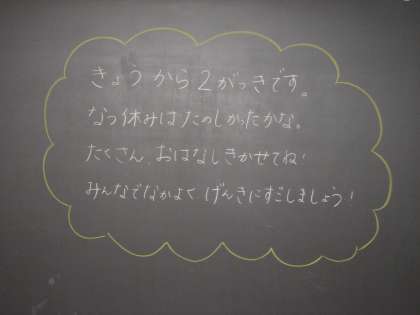 きょうから2がっきです。
なつ休みはたのしかったかな。
たくさん、おはなしきかせてね!
みんなでなかよくげんきにすごしましょう!